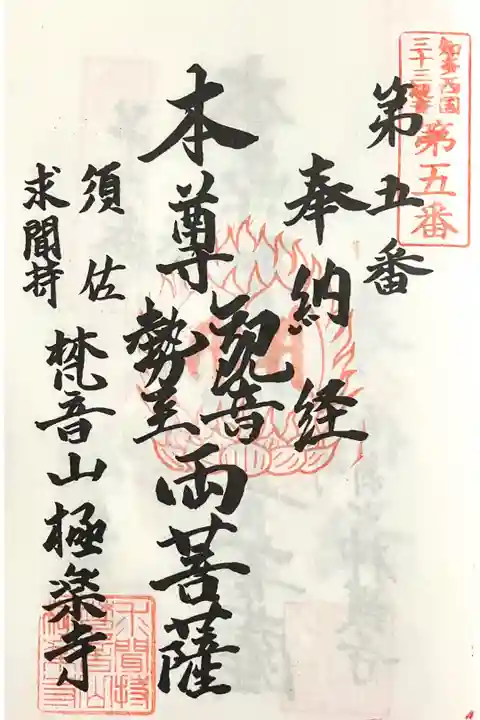 知多西国
三十三観音
第五番
第五番
奉納経
本尊観音勢至両菩薩
須佐
求聞持
梵音山極楽寺